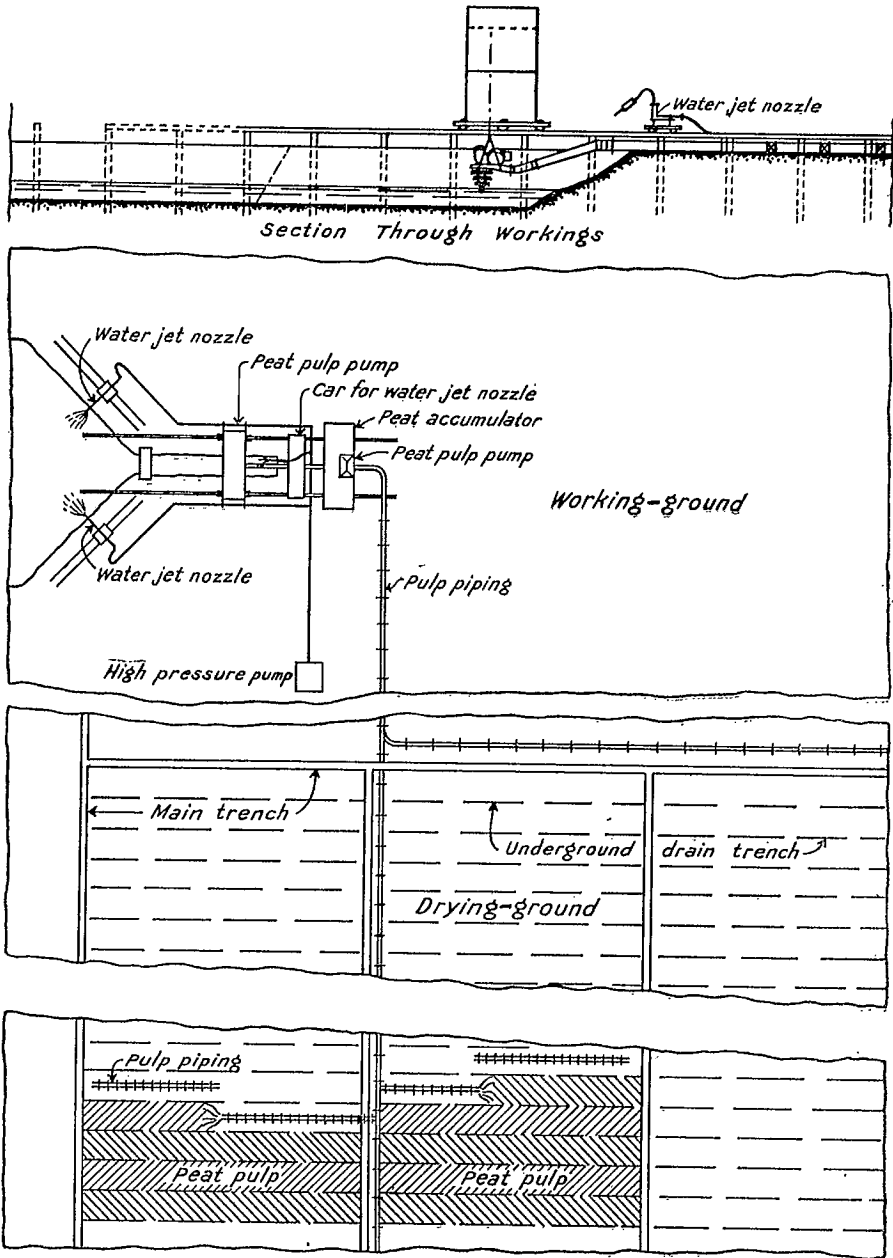 Water jet nozzle
Section Through Workings
Water jet nozzle
Peat pulp pump
Car for water jet nozzle
Peat accumulator
Peat pulp pump
Working-ground
Water jet nozzle
Pulp piping
High pressure pump
Main trench
Underground drain trench
Drying-ground
Pulp piping
Peat pulp
Peat pulp